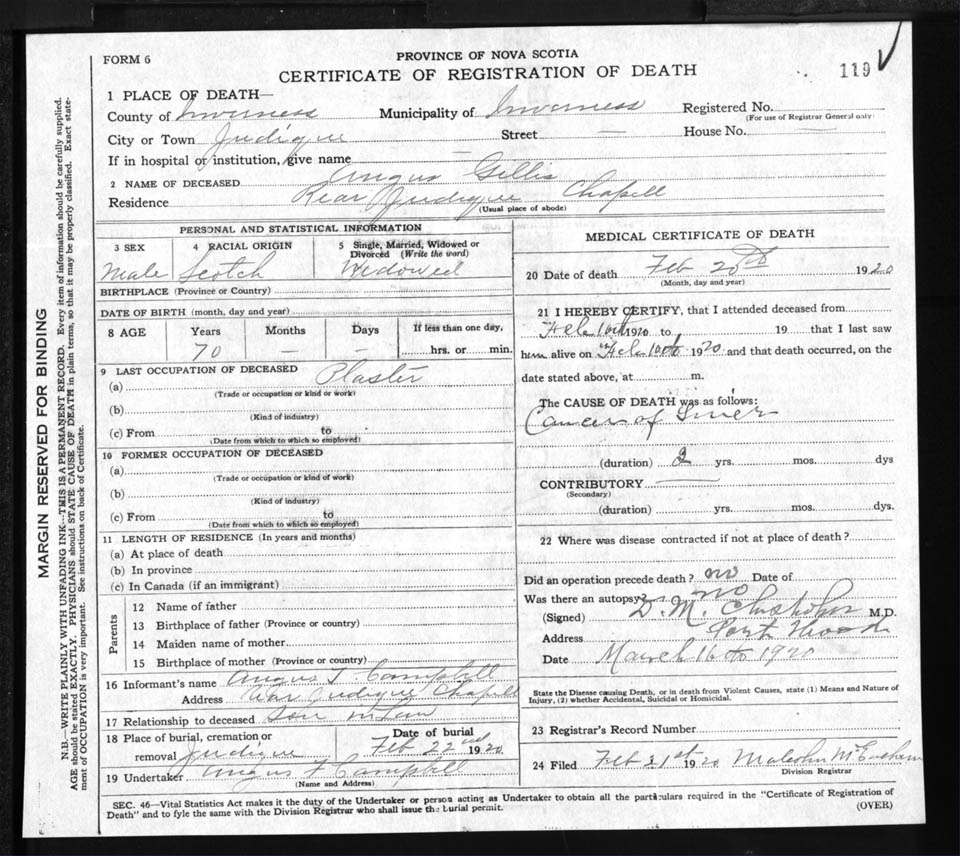 FORM 6
PROVINCE OF NOVA SCOTIA
CERTIFICATE OF REGISTRATION OF DEATH
119
1 PLACE OF DEATH—
County of Inverness Municipality of Inverness Registered No.
(For use of Registrar General only)
City or Town Judique Street — House No. —
If in hospital or institution, give name —
2 NAME OF DECEASED Angus Gillis
Residence Rear Judique Chapell
(Usual place of abode)
PERSONAL AND STATISTICAL INFORMATION
3 SEX 4 RACIAL ORIGIN 5 Single, Married, Widowed or Divorced (Write the word)
Male Scotch Widowed
BIRTHPLACE (Province or Country)
DATE OF BIRTH (month, day and year)
8 AGE Years Months Days If less than one day,
70 — — hrs. or min.
9 LAST OCCUPATION OF DECEASED
(a) Plaster
(Trade or occupation or kind or work)
(b)
(Kind of industry)
(c) From to
(Date from which to which so employed)
10 FORMER OCCUPATION OF DECEASED
(a)
(Trade or occupation or kind of work)
(b)
(Kind of industry)
(c) From to
(Date from which to which so employed)
11 LENGTH OF RESIDENCE (In years and months)
(a) At place of death
(b) In province
(c) In Canada (if an immigrant)
Parents
12 Name of father
13 Birthplace of father (Province or country)
14 Maiden name of mother
15 Birthplace of mother (Province or country)
16 Informant's name Angus J. Campbell
Address Judique Chapell
17 Relationship to deceased Son in Law
18 Place of burial, cremation or Date of burial
removal Judique Feb 22nd 1920
19 Undertaker Angus Campbell
(Name and Address)
MEDICAL CERTIFICATE OF DEATH
20 Date of death Feb 20th 1920
(Month, day and year)
21 I HEREBY CERTIFY, that I attended deceased from
Feb 10th 1920 to 19 that I last saw
him alive on Feb 10th 1920 and that death occurred, on the
date stated above, at m.
The CAUSE OF DEATH was as follows:
Cancer of Liver
(duration) 2 yrs. mos. dys
CONTRIBUTORY —
(Secondary)
(duration) yrs. mos. dys.
22 Where was disease contracted if not at place of death?
Did an operation precede death? no Date of
Was there an autopsy no
(Signed) D. M. Chisholm M.D.
Address Port Hood
Date March 16th 1920
State the Disease causing Death, or in death from Violent Causes, state (1) Means and Nature of
Injury, (2) whether Accidental, Suicidal or Homicidal.
23 Registrar's Record Number
24 Filed Feb 21st 1920 Malcolm McEachern
Division Registrar
SEC. 46—Vital Statistics Act makes it the duty of the Undertaker or person acting as Undertaker to obtain all the particulars required in the "Certificate of Registration of
Death" and to fyle the same with the Division Registrar who shall issue the burial permit. (OVER)
MARGIN RESERVED FOR BINDING
N.B.—WRITE PLAINLY WITH UNFADING INK—THIS IS A PERMANENT RECORD. Every item of information should be carefully supplied.
AGE should be stated EXACTLY. PHYSICIANS should STATE CAUSE OF DEATH in plain terms, so that it may be properly classified. Exact state-
ment of OCCUPATION is very important. See instructions on back of Certificate.